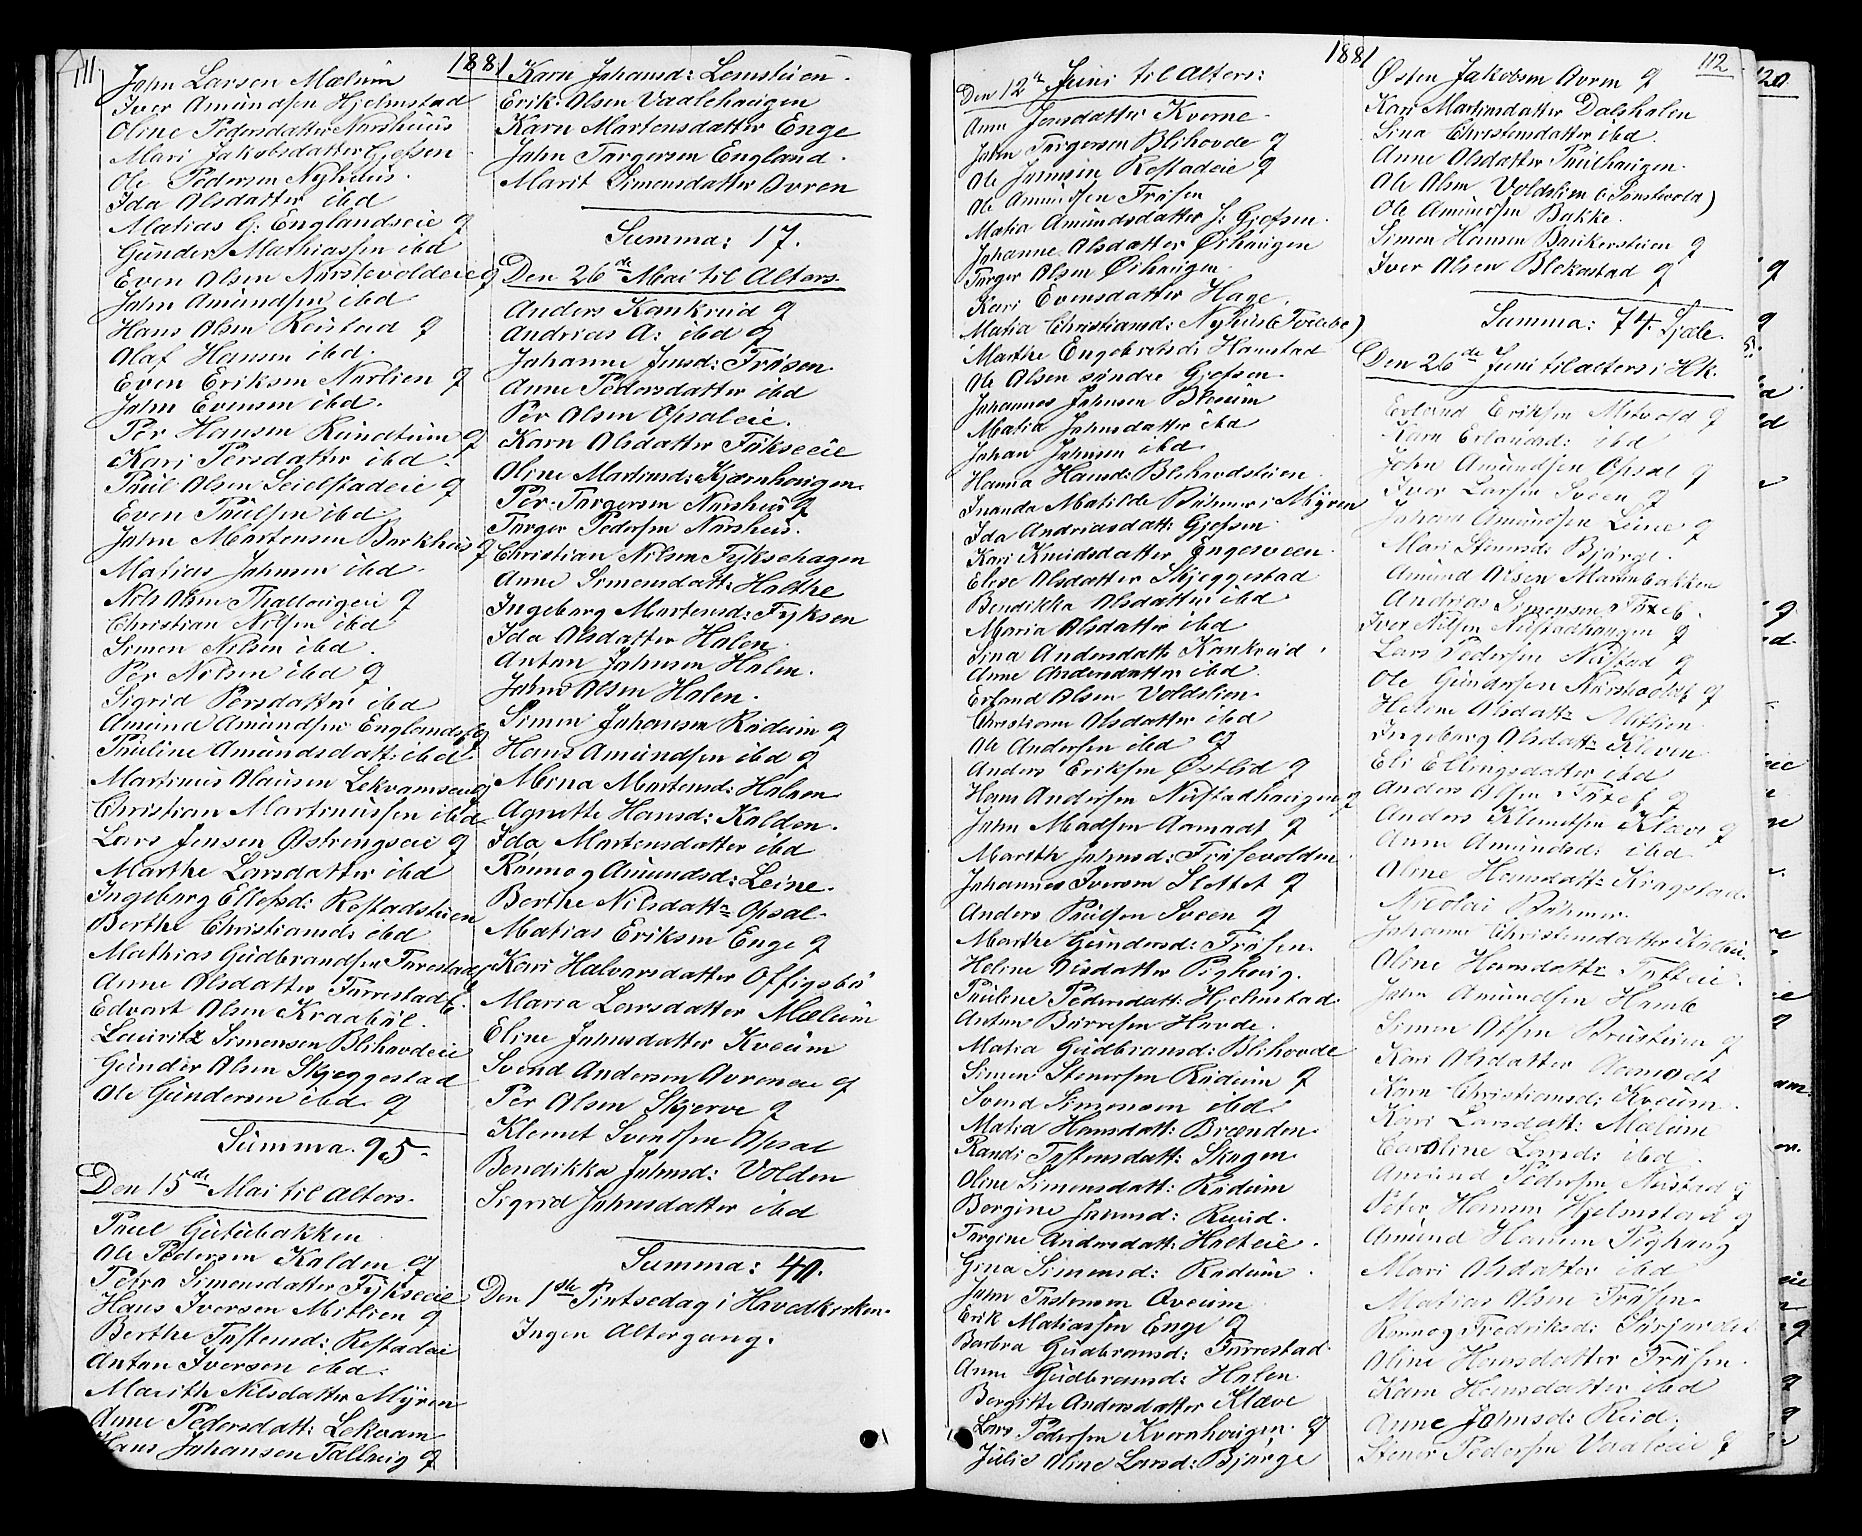 111
1881
John Larsen Mælum
Iver Amundsen Hjelmstad
Oline Pedersdatter Narshuus
Mari Jakobsdatter Gjefsen
Ole Pedersen Nyhuus.
Ida Olsdatter ibd
Matias G: Englandseie g
Gunder Mathiassen ibd
Even Olsen Narstevoldeie g
John Amundsen ibd
Hans Olsen Roustad g
Olaf Hansen ibd.
Even Eriksen Nordlien g
John Evensen ibd.
Per Hansen Rundtum g
Kari Persdatter ibd.
Paul Olsen Seielstadeie g
Even Paulsen ibd
John Martensen Barkhus g
Matias Johnsen ibd.
Nils Olsen g
Christian Nilsen ibd
Simen Nilsen ibd.
Per Nilsen ibd g
Sigrid Persdatter ibd
Amund Amundsen Englandse g
Pauline Amundsdatt: ibd
Martinus Olausen Lekvamseie g
Christian Martinussen ibd
Lars Jensen Østringseie g
Marthe Larsdatter ibd
Ingeborg Ellefsd: Rostadstuen
Berthe Christiansd: ibd
Mathias Gudbrandsen Farestad
Anne Olsdatter Farrestad
Edvart Olsen Kraabøl.
Lauritz Simensen Blihovdeie
Gunder Olsen Skjeggestad
Ole Gundersen ibd. g
Summa. 95.
Den 15de Mai til Alters.
Paul Gutubakken
Ole Pedersen Kalden. g
Petra Simensdatter Fykseeie
Hans Iversen Mitlien g
Berthe Tostensd: Rostadeie
Anton Iversen ibd.
Marith Nilsdatter Myren
Anne Pedersdatt: Lekvam
Hans Johansen Fallvig g
Karn Johansd: Lomstuen.
Erik Olsen Vaalehaugen
Karn Martensdatter Enge
John Torgersen England.
Marit Simensdatter Avren
Summa: 17.
Den 26de Mai til Alters.
Anders Kankrud g
Andrias A: ibd g
Johanne Jensd: Frøsen.
Anne Pedersdatter ibd
Per Olsen Opsaleie.
Karn Olsdatter Fykseeie
Oline Martinsd: Kjørnhaugen.
Per Torgersen Narshus g
Torger Pedersen Narshus.
Christian Nilsen Fyksehagen
Anne Simensdatt: Holthe
Ingeborg Martensd: Fyksen
Ida Olsdatter Halen
Anton Johnsen Halen.
John Olsen Halen.
Simen Johansen Rudum g
Hans Amundsen ibd g
Mina Martensd: Halsen
Agnethe Hansd: Kalden.
Ida Martensdatter ibd
Rønnog Amundsd: Leine.
Berthe Nilsdattr Opsal.
Matias Eriksen Enge g
Kari Halvarsdatter Offigsbø
Maria Larsdatter Mælum
Eline Johnsdatter Kveum
Svend Andersen Avreneie g
Per Olsen Skjerve g
Klemet Svendsen Opsal
Bendikka Johnsd: Volden
Sigrid Johnsdatter ibd
Summa: 40.
Den 1ste Pintsedag i Hovedkirken.
Ingen Altergang.
1881
112
Den 12te Juni til Alters:
Ane Jonsdatter Kverne.
John Torgersen Blihovde g
Ole Jonsen Rostadeie g
Ole Amundsen Frøsen
Matia Amundsdatter S: Gjefsen.
Johanne Olsdatter Øihaugen
Torger Olsen Øihaugen.
Kari Evensdatter Hage.
Matia Christiansd: Nyhus (Tvetebe)
Marthe Engebretsd: Hanstad
Ole Olsen søndre Gjefsen.
Johannes Johnsen Bleium
Matia Johnsdatter ibd
Johan Johnsen ibd
Hanna Hansd: Blihovdstuen
Inanda Matilde Bøhmer i Myren
Ida Andriasdatt: Gjefsen.
Kari Knudsdatter Engesveen.
Elise Olsdatter Skjeggestad
Bendikka Olsdatter ibd
Maria Olsdatter ibd
Sina Andersdatt: Kankrud.
Anne Andersdatter ibd.
Erland Olsen Voldslien.
Christiane Olsdatter ibd
Ole Andersen ibd g
Anders Eriksen Østlid g
Hans Andersen Nustadhaugen g
John Madsen Aamodt g
Marith Johnsd: Frøsevolden
Johannes Iversen Slettet g
Anders Paulsen Sveen g
Marthe Gundersd: Frøsen.
Heline Nisdatter Pighaug.
Pauline Pedersdatt: Hjelmstad.
Anton Børresen Hovde.
Matia Gudbransd: Blihovde
Simen Stenersen Rudum g
Svend Simensen ibd
Matia Hansdatt: Brænden.
Randi Tostensdatt: Skogen.
Oline Simensdatt: Rudum
Bergine Johnsd: Ruud.
Torgine Andersdatt: Holteie.
Gina Simensd: Rudum.
John Tostensen Qveum
Erik Matiassen Enge g
Barbra Gudbransd: Farrestad.
Anne Gudbransd: Halen.
Bergitte Andersdatter Klæve
Lars Pedersen Kvernhaugen. g
Julie Oline Larsd: Bjørge
Østen Jakobsen Avren g
Kari Martinsdatter Dalshalen
Sina Christensdatter ibd.
Anne Olsdatter Paulhaugen.
Ole Olsen Voldslien (Tonstevold)
Ole Amundsen Bakke.
Simen Hansen Brukerstuen g
Iver Olsen Blekastad g
Summa: 74. Sjæle.
Den 26de Juni til alters i Hk.
Erland Eriksen Mitvold g
Karn Erlandsd: ibd
John Amundsen Opsal g
Iver Larsen Sveen g
Johans Amundsen Leine g
Mari Stensd: Bjørge.
Amund Olsen Mannbakken
Andrias Simensen
Iver Nilsen Nustadhaugen g
Lars Pedersen Nustad g
Ole Gundersen g
Helene Olsdattr Mitlien
Ingeborg Olsdattr Kleven
Eli Ellingsdatter ibd
Anders Olsen g
Anders Klemetsen Klæve g
Anne Amundsd: ibd
Oline Hansdattr Kragstad.
Nicolai Bøhmer.
Johanne Christensdatter
Oline Hansdattr
John Amundsen Hamb
Simen Olsen Brustuen g
Kari Olsdatter Aamodt
Karn Christiansd: Kveum.
Kari Larsdatt: Mælum
Caroline Larsd: ibd.
Amund Pedersen Nustad g
Peter Hansen Hjelmstad g
Amund Hansen Pighaug
Mari Olsdatter ibd
Matias Olsen Frøsen.
Rønnog Fredriksd:
Oline Hansdatter Frøsen.
Karn Hansdatter ibd
Anne Johnsd: Ruud.
Stener Pedersen Vaaleeie g